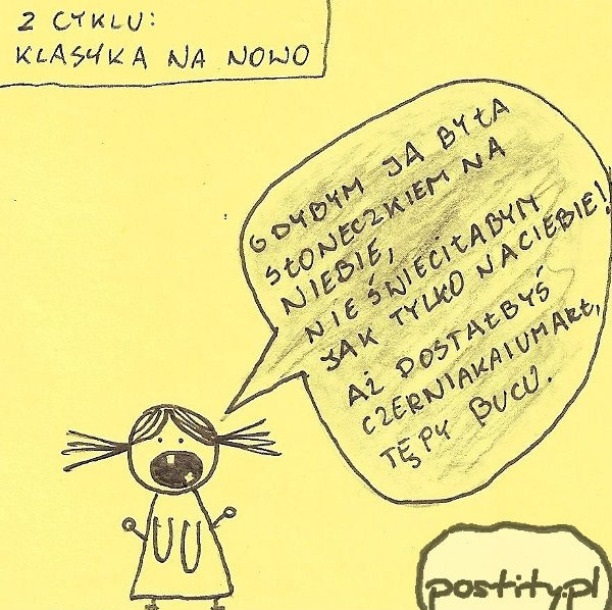 Z CYKLU:
KLASYKA NA NOWO
GDYBYM JA BYŁA
SŁONECZKIEM NA
NIEBIE,
NIE ŚWIECIŁABYM
JAK TYLKO NA CIEBIE!
AŻ DOSTAŁBYŚ
CZERNIAKA I UMARŁ,
TĘPY BUCU.
postity.pl